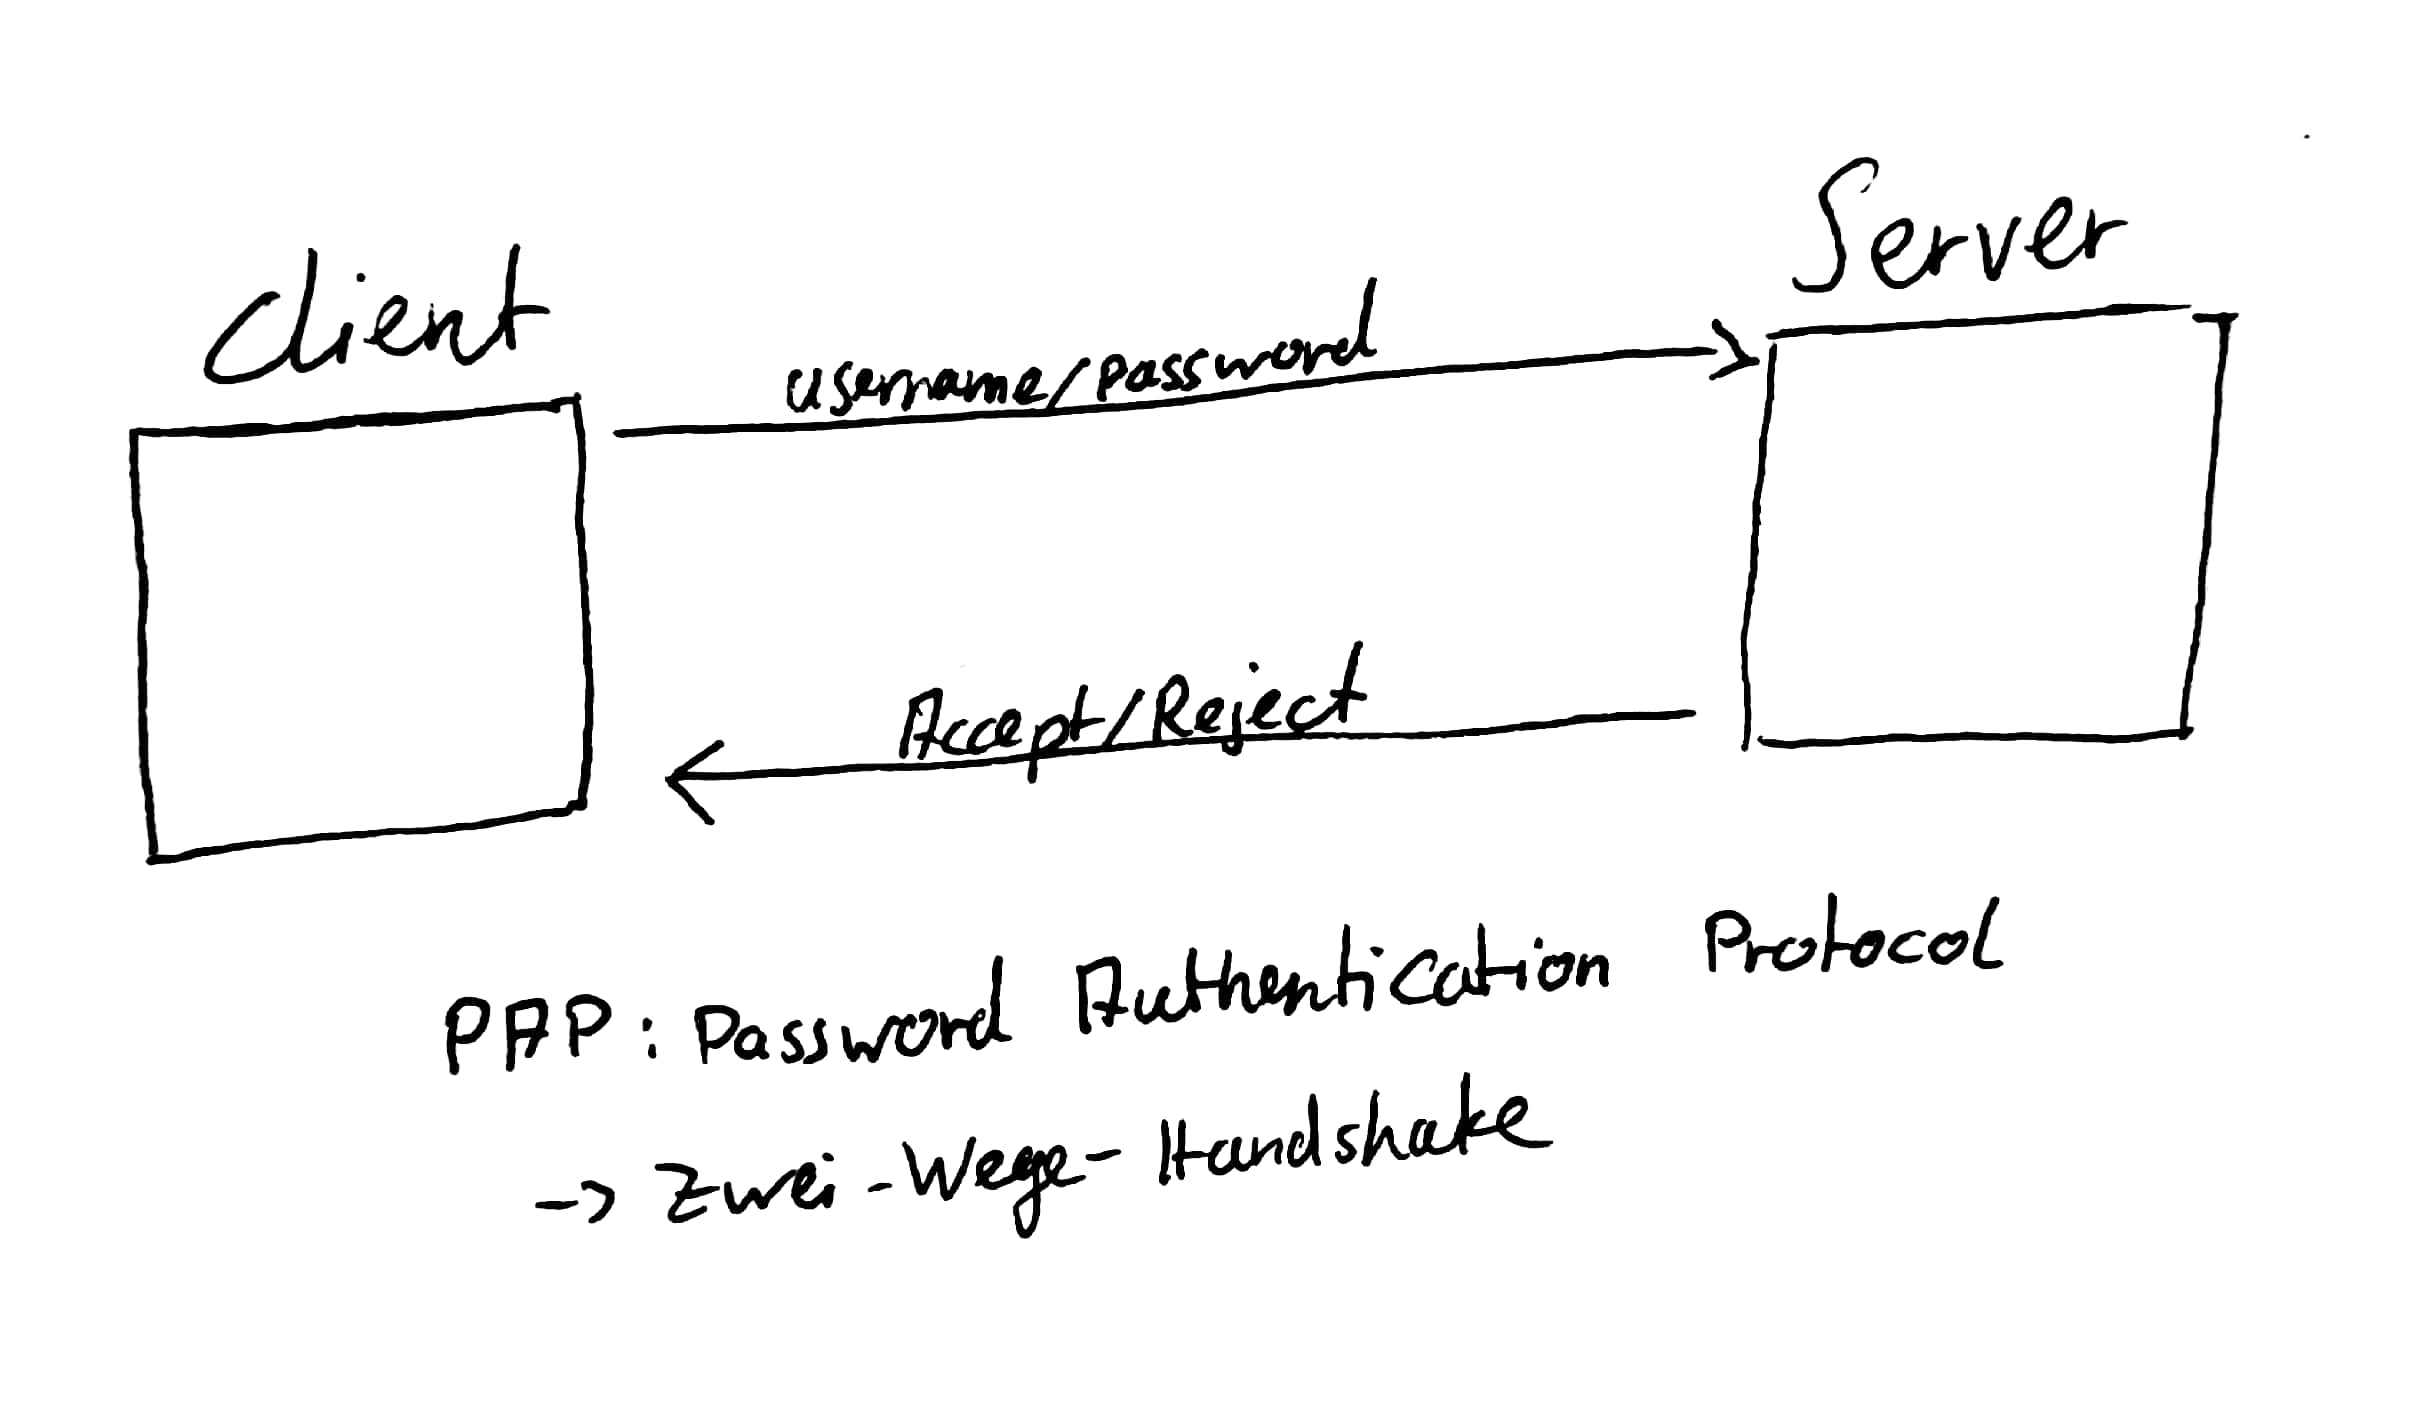 Client
Server
username/password
Accept/Reject
PAP: Password Authentication Protocol
-> Zwei-Wege-Handshake